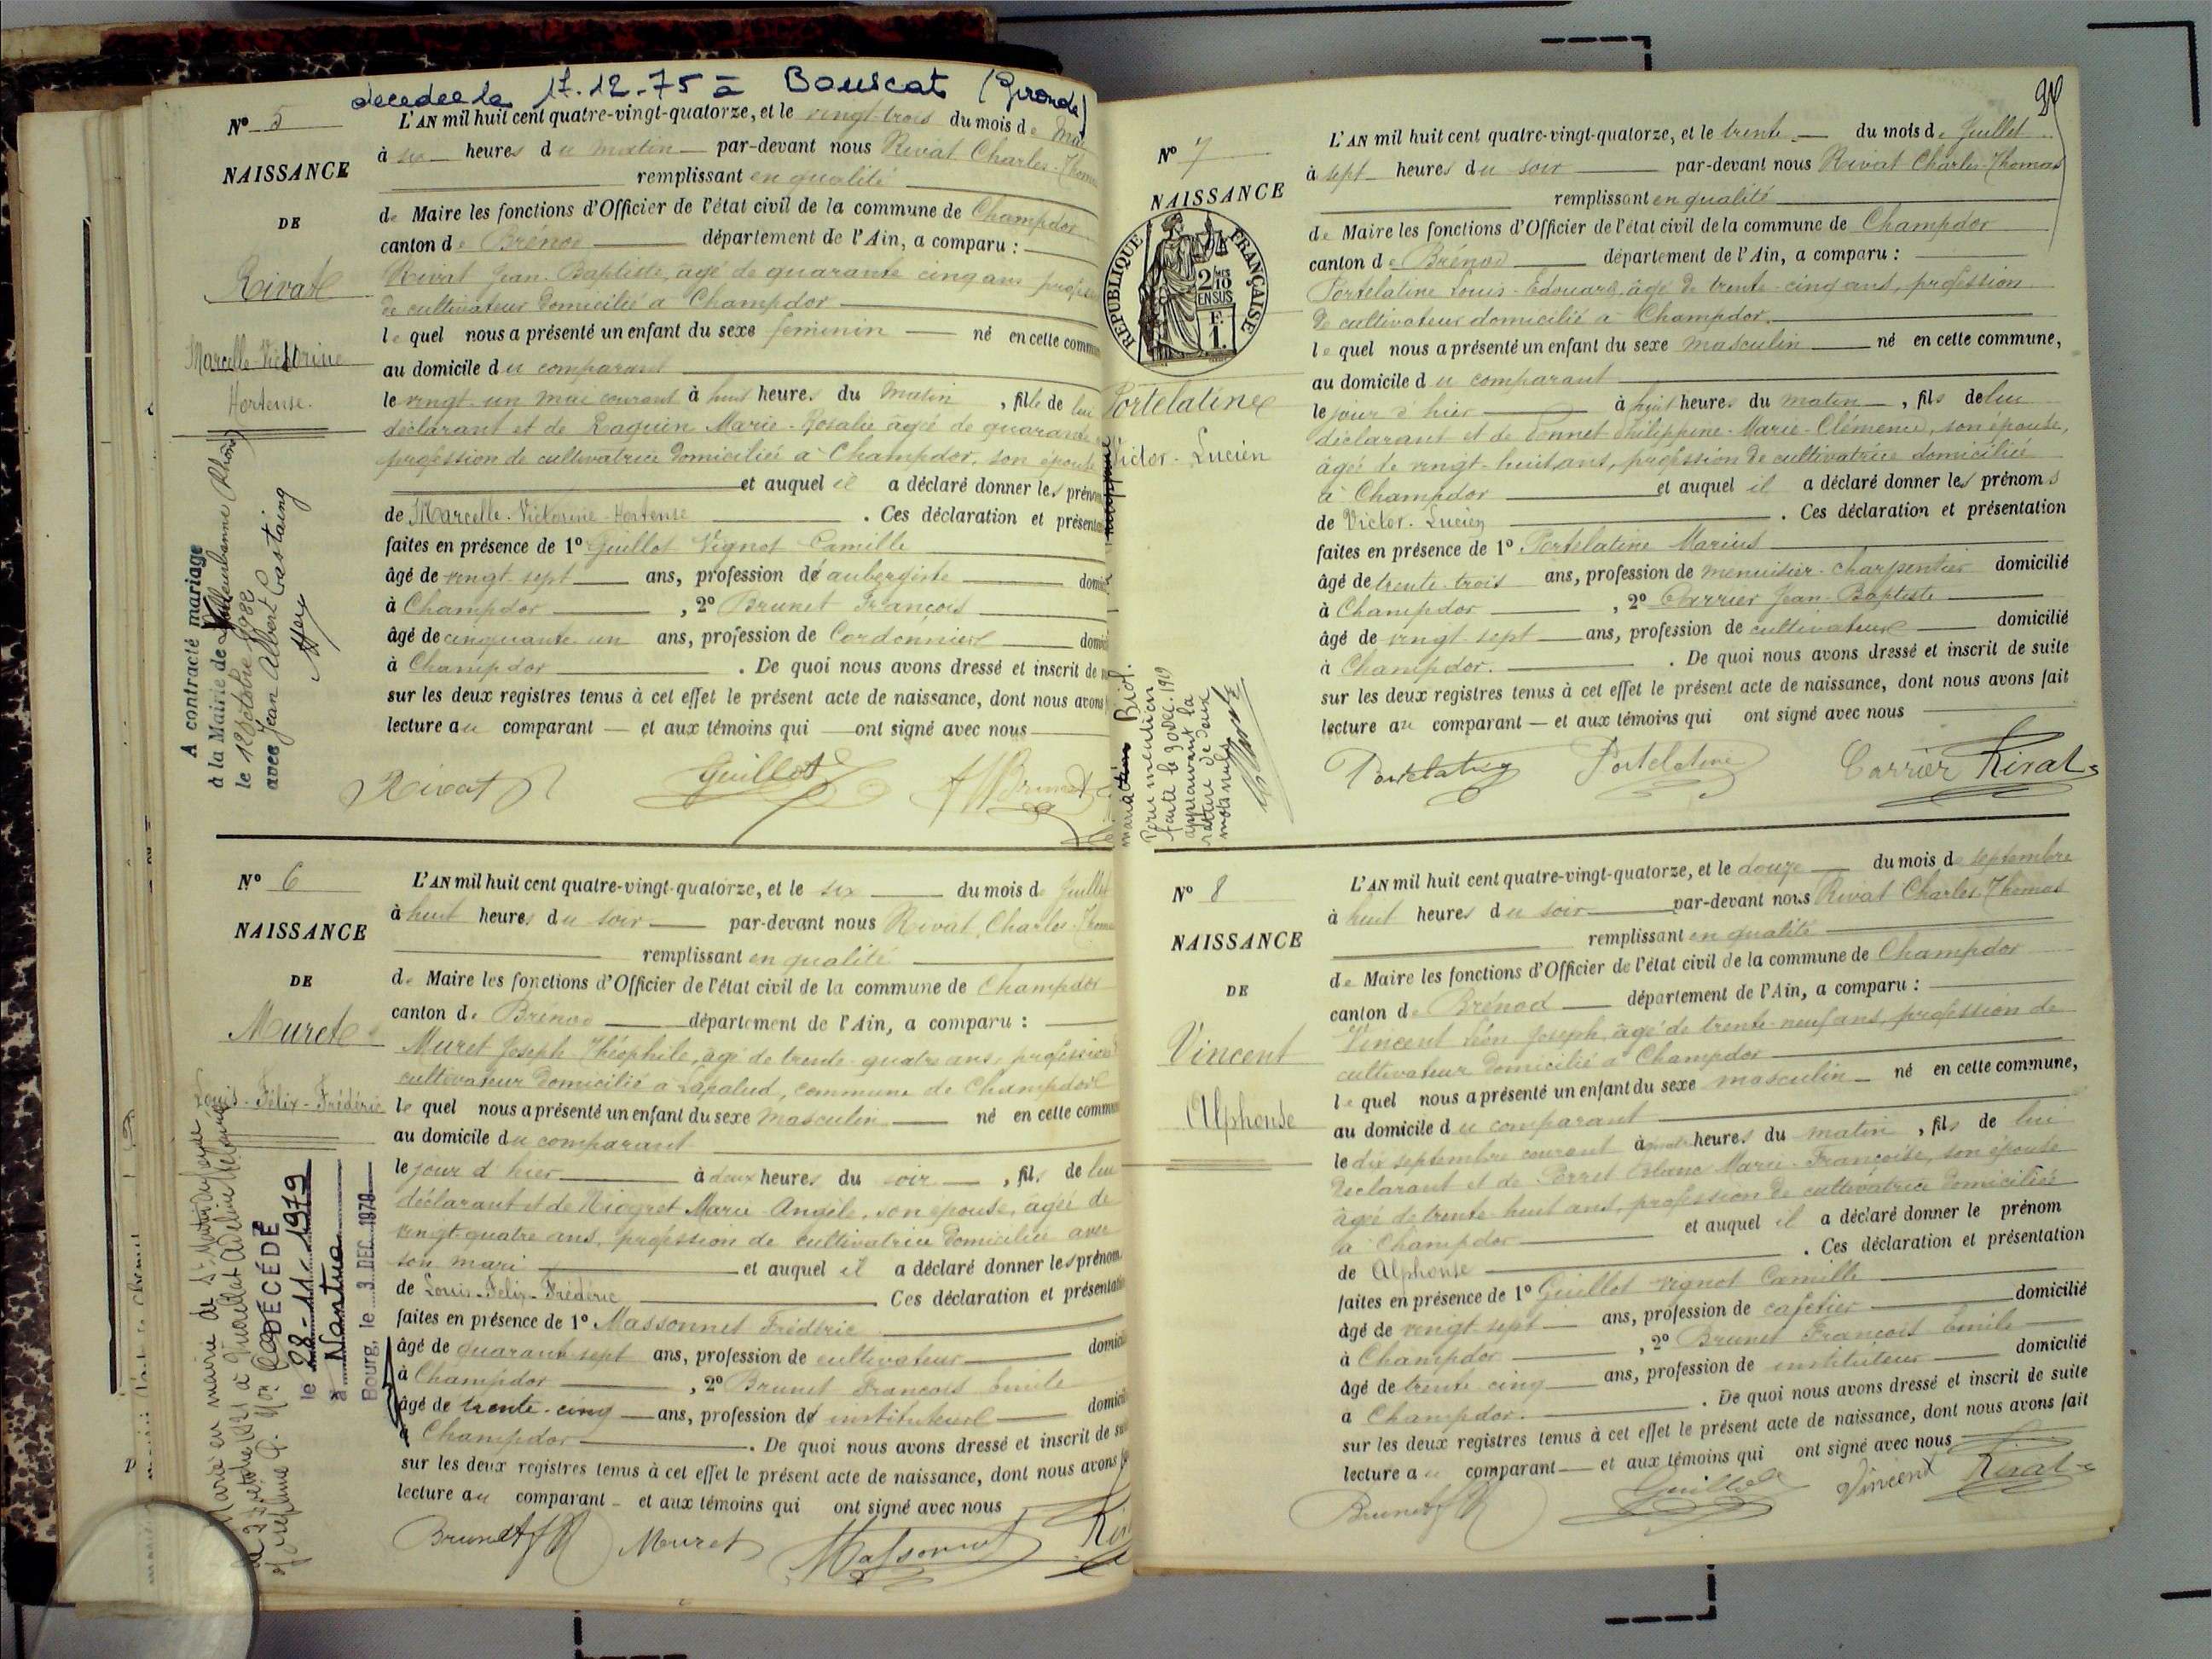 decedee le 17.12.75 à Bouscat (Gironde)
N° 5
NAISSANCE
DE
Rivat
Marcelle-Victorine
Hortense.
A contracté mariage
à la Mairie de Villeurbanne (Rhône)
le 12 Octobre
avec Jean Albert Castaing
L'AN mil huit cent quatre-vingt-quatorze, et le vingt-trois du mois de Mai
à six heures du matin par-devant nous Rivat Charles-Thomas
remplissant en qualité
de Maire les fonctions d'Officier de l'état civil de la commune de Champdor
canton de Brénod département de l'Ain, a comparu :
Rivat Jean-Baptiste, âgé de quarante cinq ans
de cultivateur domicilié à Champdor
lequel nous a présenté un enfant du sexe feminin né en cette commune
au domicile du comparant
le vingt-un mai courant à huit heures du matin, fille de lui
déclarant et de Marie-Rosalie âgée de quarante
profession de cultivatrice domiciliée à Champdor, son épouse
et auquel il a déclaré donner les prénoms
de Marcelle-Victorine-Hortense. Ces déclaration et présentation
faites en présence de 1° Guillot Vignot Camille
âgé de vingt-sept ans, profession d'aubergiste
à Champdor, 2° Brunet François
âgé de cinquante un ans, profession de Cordonnier
à Champdor. De quoi nous avons dressé et inscrit de
sur les deux registres tenus à cet effet le présent acte de naissance, dont nous avons
lecture au comparant et aux témoins qui ont signé avec nous
Rivat Guillot Brunet
N° 6
NAISSANCE
DE
Muret
Louis-Félix-Frédéric
Marié en mairie de
DÉCÉDÉ
le 28-11-1979
à Nantua
Bourg, le 3 DEC 1979
L'AN mil huit cent quatre-vingt-quatorze, et le six du mois de Juillet
à huit heures du soir par-devant nous Rivat, Charles-Thomas
remplissant en qualité
de Maire les fonctions d'Officier de l'état civil de la commune de Champdor
canton de Brénod département de l'Ain, a comparu :
Muret Joseph Théophile, âgé de trente-quatre ans, profession
cultivateur domicilié à Lapalud, commune de Champdor
lequel nous a présenté un enfant du sexe masculin né en cette commune
au domicile du comparant
le jour d'hier à deux heures du soir, fils de lui
déclarant et de Niogret Marie-Angèle, son épouse, âgée de
vingt-quatre ans, profession de cultivatrice domiciliée avec
son mari et auquel il a déclaré donner les prénoms
de Louis-Félix-Frédéric. Ces déclaration et présentation
faites en présence de 1° Massonnet Frédéric
âgé de quarante sept ans, profession de cultivateur
à Champdor, 2° Brunet François Emile
âgé de trente-cinq ans, profession d'instituteur
à Champdor. De quoi nous avons dressé et inscrit de suite
sur les deux registres tenus à cet effet le présent acte de naissance, dont nous avons
lecture au comparant et aux témoins qui ont signé avec nous
Brunet Muret Massonnet
24
N° 7
NAISSANCE
RÉPUBLIQUE FRANÇAISE
2/10
EN SUS
F.
1.
Portelatine
Victor-Lucien
mention Biof.
Pour mention
faite le 30 Dec. 1919
approuvant la
rature de deux
mots nuls
L'AN mil huit cent quatre-vingt-quatorze, et le trente du mois de Juillet
à sept heures du soir par-devant nous Rivat Charles-Thomas
remplissant en qualité
de Maire les fonctions d'Officier de l'état civil de la commune de Champdor
canton de Brénod département de l'Ain, a comparu :
Portelatine Louis-Edouard, âgé de trente-cinq ans, profession
de cultivateur domicilié à Champdor.
lequel nous a présenté un enfant du sexe masculin né en cette commune,
au domicile du comparant
le jour d'hier à huit heures du matin, fils de lui
déclarant et de Bonnet Philippine-Marie-Clémence, son épouse,
âgée de vingt-huit ans, profession de cultivatrice domiciliée
à Champdor et auquel il a déclaré donner les prénoms
de Victor-Lucien. Ces déclaration et présentation
faites en présence de 1° Portelatine Marius
âgé de trente-trois ans, profession de menuisier-charpentier domicilié
à Champdor, 2° Carrier Jean-Baptiste
âgé de vingt-sept ans, profession de cultivateur domicilié
à Champdor. De quoi nous avons dressé et inscrit de suite
sur les deux registres tenus à cet effet le présent acte de naissance, dont nous avons fait
lecture au comparant et aux témoins qui ont signé avec nous
Portelatine Portelatine Carrier Rivat
N° 8
NAISSANCE
DE
Vincent
Alphonse
L'AN mil huit cent quatre-vingt-quatorze, et le douze du mois de septembre
à huit heures du soir par-devant nous Rivat Charles Thomas
remplissant en qualité
de Maire les fonctions d'Officier de l'état civil de la commune de Champdor
canton de Brénod département de l'Ain, a comparu :
Vincent Léon Joseph, âgé de trente-neuf ans, profession de
cultivateur domicilié à Champdor
lequel nous a présenté un enfant du sexe masculin né en cette commune,
au domicile du comparant
le dix septembre courant à heures du matin, fils de lui
déclarant et de Perret Marie-Françoise, son épouse
âgée de trente-huit ans, profession de cultivatrice domiciliée
à Champdor et auquel il a déclaré donner le prénom
de Alphonse. Ces déclaration et présentation
faites en présence de 1° Guillot Vignot Camille
âgé de vingt-sept ans, profession de cafetier domicilié
à Champdor, 2° Brunet François Emile
âgé de trente cinq ans, profession de instituteur domicilié
à Champdor. De quoi nous avons dressé et inscrit de suite
sur les deux registres tenus à cet effet le présent acte de naissance, dont nous avons fait
lecture au comparant et aux témoins qui ont signé avec nous
Brunet Guillot Vincent Rivat